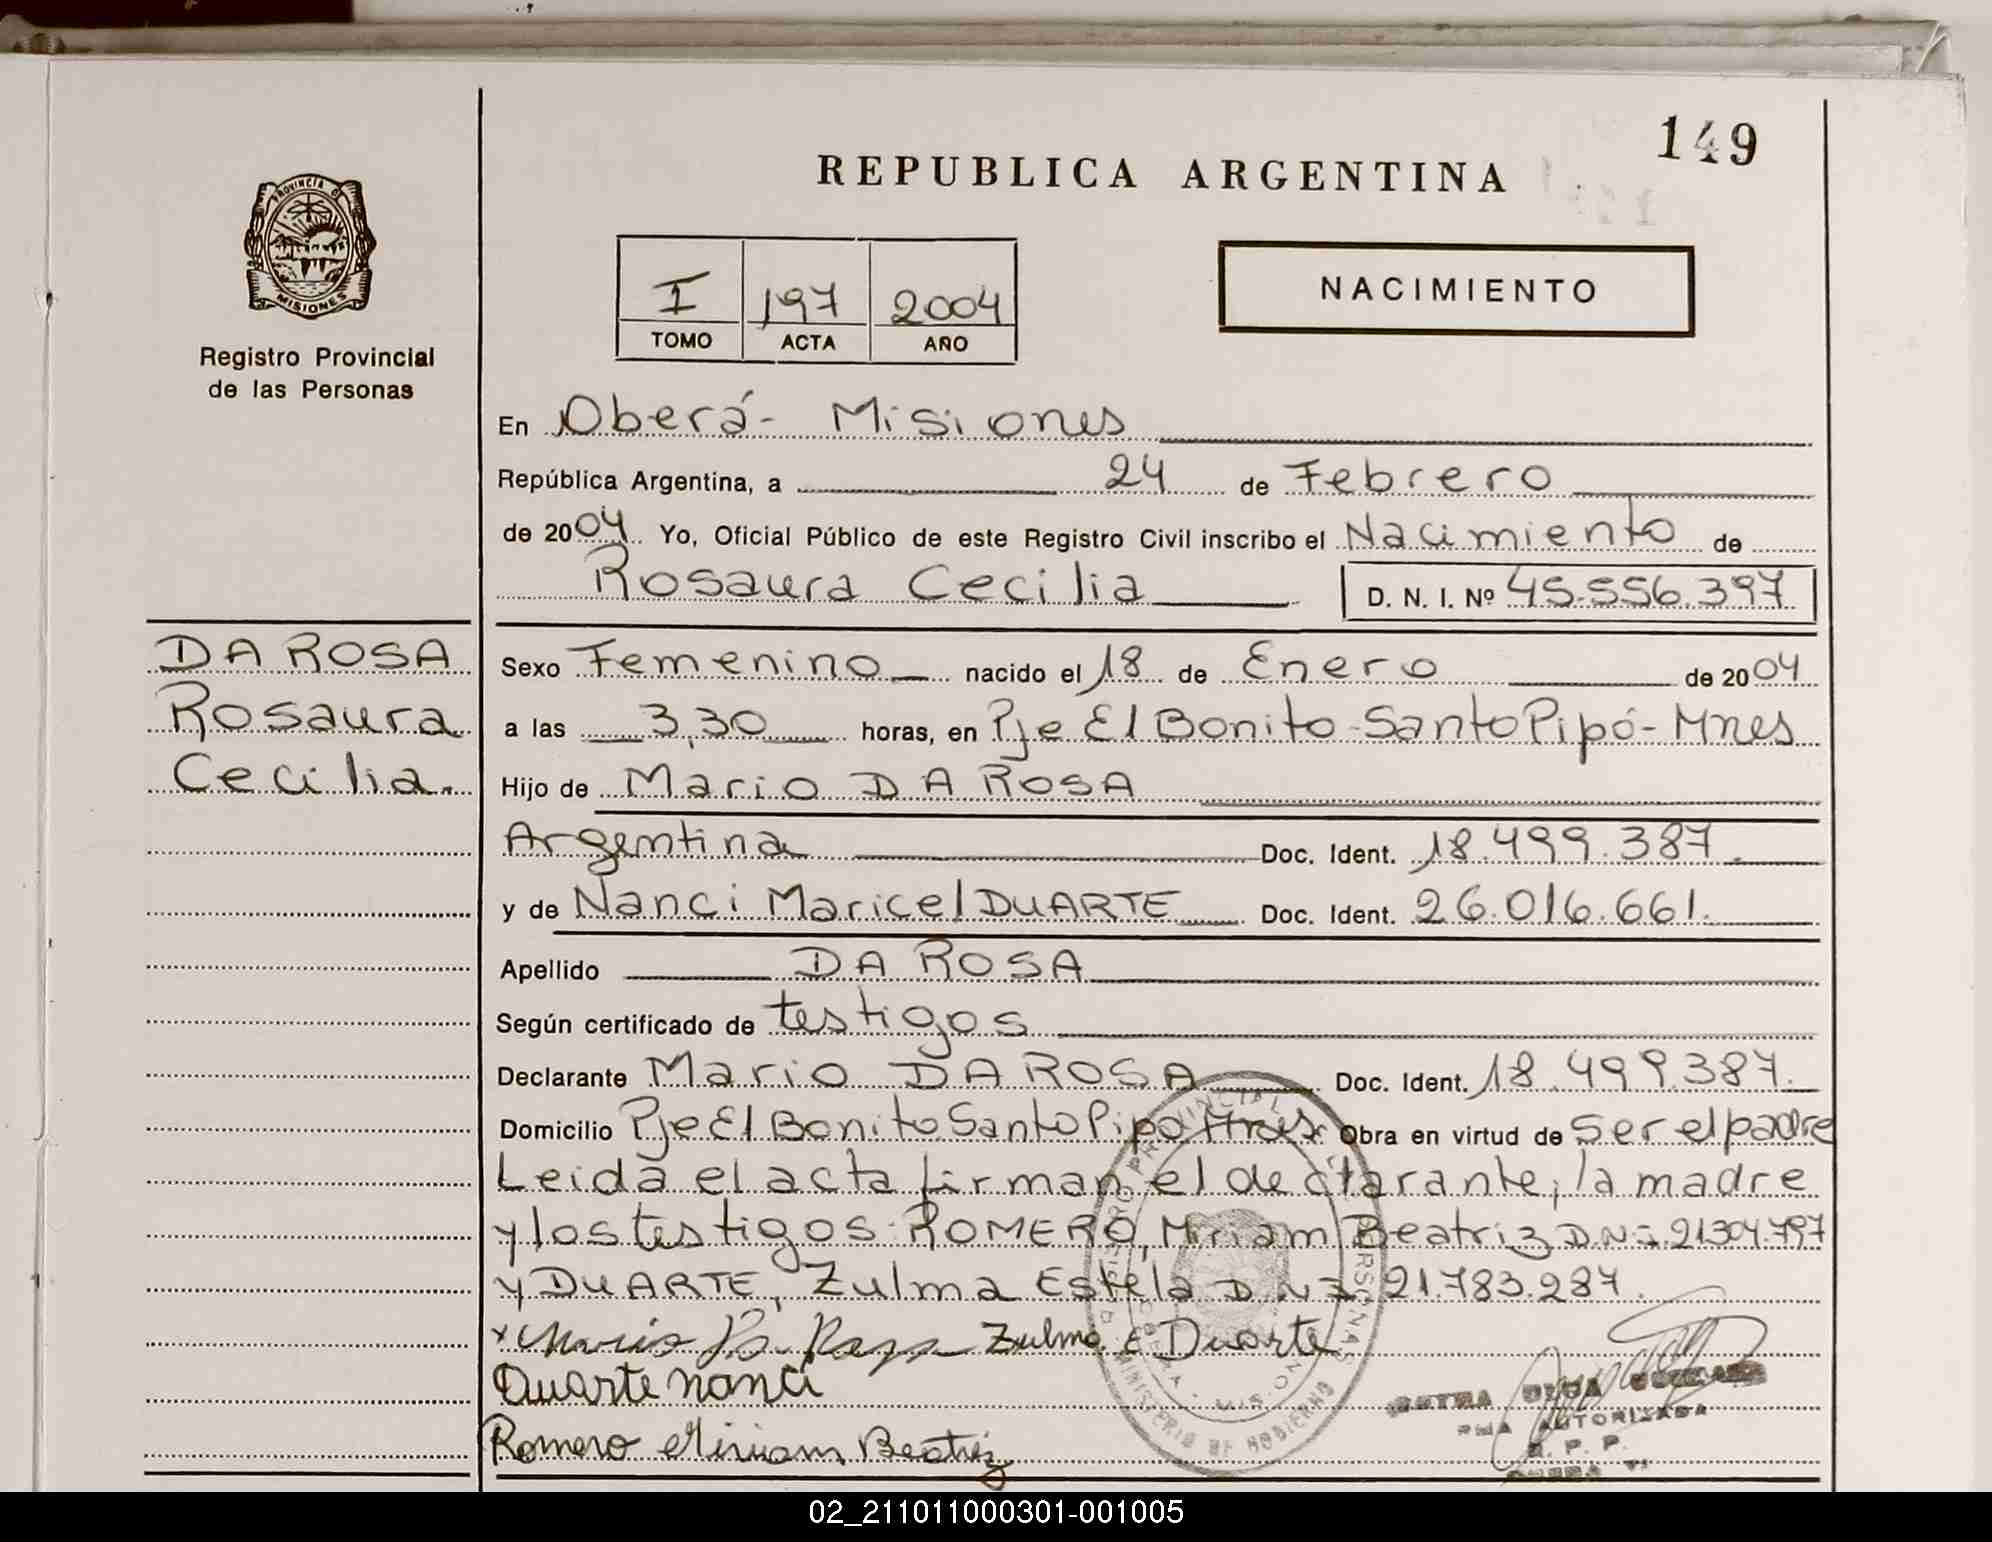 149
REPUBLICA ARGENTINA
PROVINCIA DE
MISIONES
Registro Provincial
de las Personas
I 197 2004
TOMO ACTA AÑO
NACIMIENTO
En Oberá - Misiones
República Argentina, a 24 de Febrero
de 2004 Yo, Oficial Público de este Registro Civil inscribo el Nacimiento de
Rosaura Cecilia D. N. I. Nº 45.556.397
DA ROSA
Rosaura
Cecilia.
Sexo Femenino nacido el 18 de Enero de 2004
a las 3,30 horas, en Pje El Bonito - Santo Pipó - Mnes
Hijo de Mario DA ROSA
Argentina Doc. Ident. 18.499.387.
y de Nanci Maricel DUARTE Doc. Ident. 26.016.661.
Apellido DA ROSA
Según certificado de testigos
Declarante Mario DA ROSA Doc. Ident. 18.499.387.
Domicilio Pje El Bonito Santo Pipo Mnes Obra en virtud de Ser el padre
Leida el acta firman el declarante, la madre
y los testigos: ROMERO, Miriam Beatriz D.N.I. 21.304.797
y DUARTE, Zulma Estela D.N.I. 21.783.287.
x Mario Da Rosa Zulma E Duarte
Duarte Nanci
Romero Miriam Beatriz
REGISTRO PROVINCIAL DE LAS PERSONAS
MINISTERIO DE GOBIERNO
OBERA - MISIONES
AUTORIZADA
R. P. P.
02_211011000301-001005